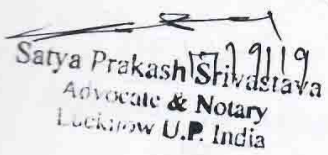 Satya Prakash Srivastava
Advocate & Notary
Lucknow U.P. India